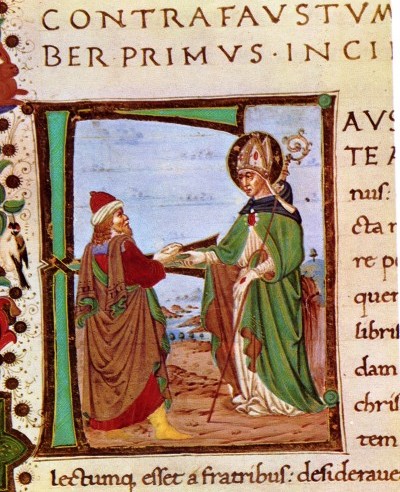 CONTRA FAUSTUM
BER PRIMUS · INCI
AUS
TE A
nus:
cta r
re p
quer
libris
dam
chris
tem
lectumq, esset a fratribus: desideraue